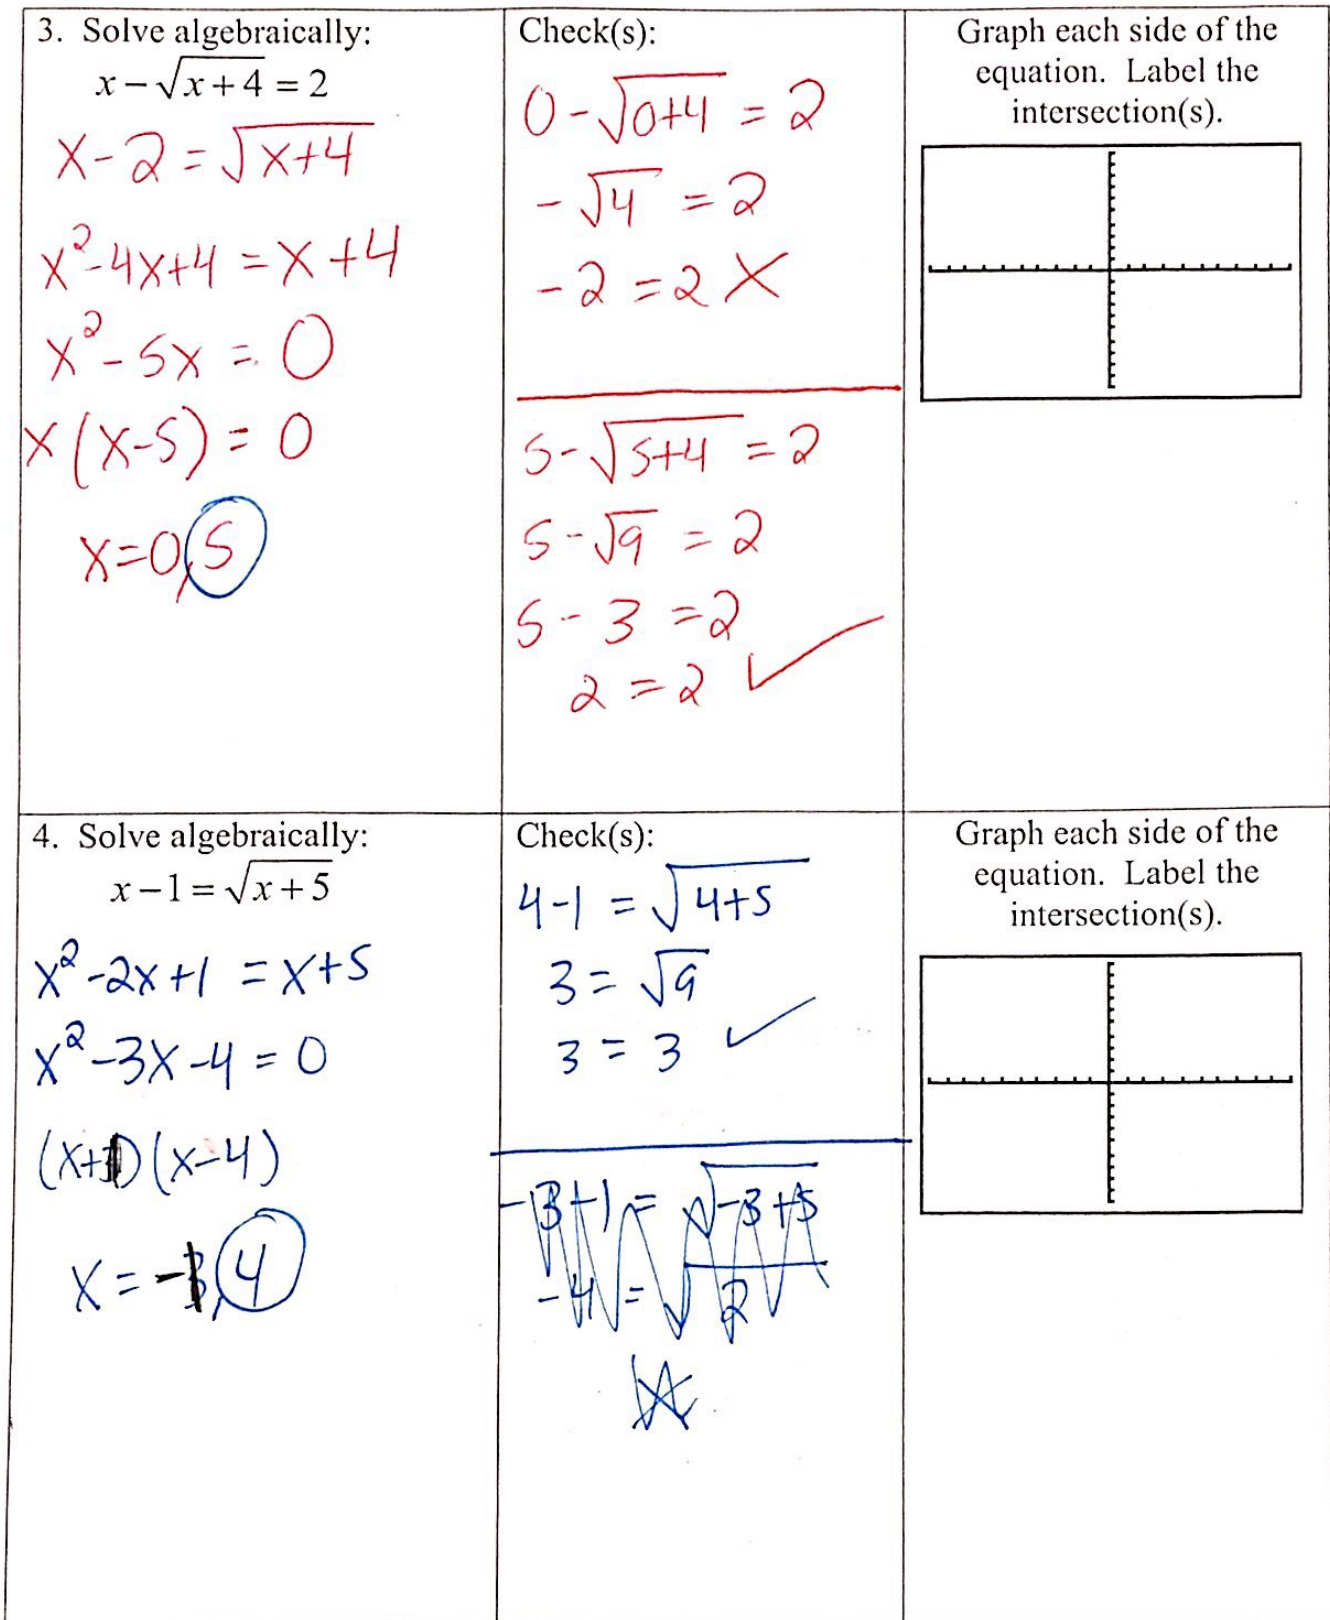 3. Solve algebraically:
x − √(x + 4) = 2
x - 2 = √(x+4)
x² - 4x + 4 = x + 4
x² - 5x = 0
x(x-5) = 0
x = 0, 5
Check(s):
0 - √(0+4) = 2
-√4 = 2
-2 = 2 X
5 - √(5+4) = 2
5 - √9 = 2
5 - 3 = 2
2 = 2 ✓
Graph each side of the
equation. Label the
intersection(s).
4. Solve algebraically:
x − 1 = √(x + 5)
x² - 2x + 1 = x + 5
x² - 3x - 4 = 0
(x+1)(x-4)
x = -1, 4
Check(s):
4 - 1 = √(4+5)
3 = √9
3 = 3 ✓
-3 - 1 = √(-3+5)
-4 = √2
Graph each side of the
equation. Label the
intersection(s).